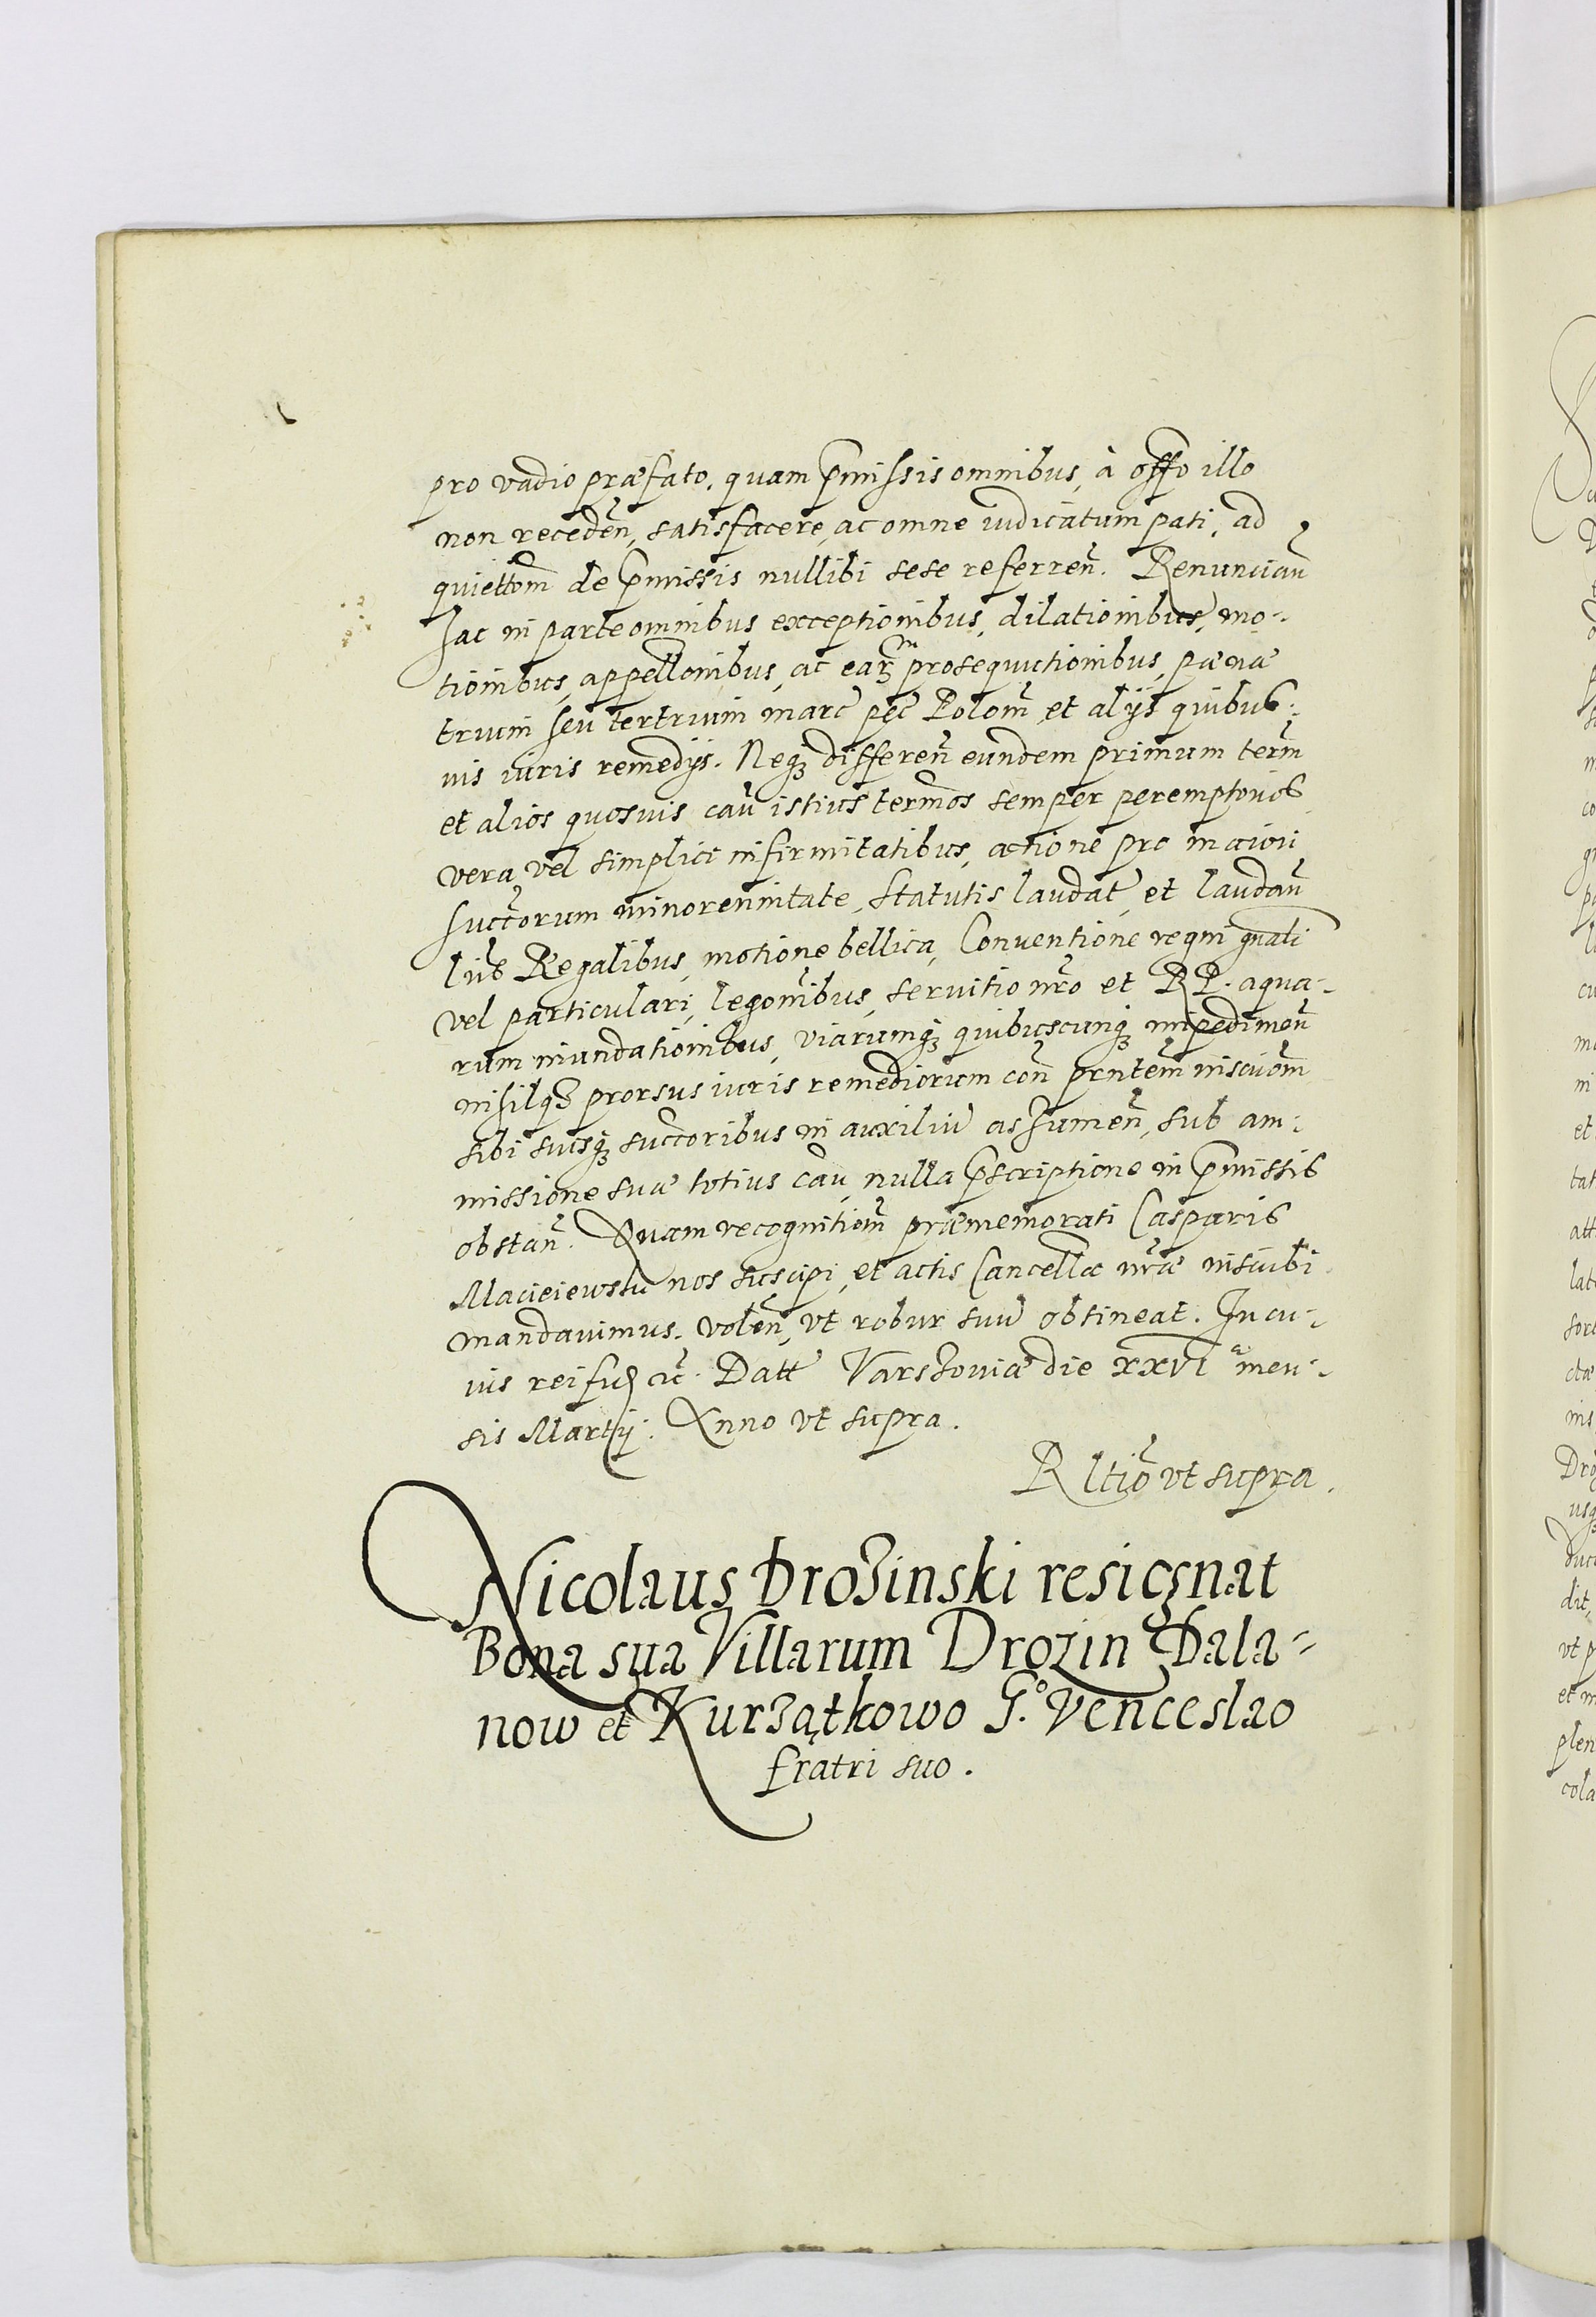 pro vadio præfato, quam p̄missis omnibus, à offo illo
non recedeñ, satisfacere, ac omne iudicatum pati, ad
quiettom̃ de p̄missis nullibi sese referreñ. Renuncian̄
hac in parte omnibus exceptionibus, dilationibus, mo-
tionibus, appellonibus, ac earm̃ prosequutionibus, pænæ
trium seu ter trium marc̃ pec̃ Polom̃ et alijs quibus-
uis iuris remedijs. Neq3 differen̄ eundem primum term̃
et alios quosuis cau̅ istius termos semper peremptorios
vera vel simplici infirmitatibus, actione pro maiori
succorum minorennitate, statutis laudat̃ et laudan̄
lir̃is Regalibus, motione bellica, Conuentione regni gnãli
vel particulari, legonibus, seruitio nr̃o et RP. aqua-
rum inundationibus, viarumq3 quibuscunq3 impedimen̄
nihilq3 prorsus iuris remediorum con̄ prntem̃ inscriom̃
sibi suisq3 succoribus in auxiliu̅ assumen̄, sub am-
missione suæ totius cau̅, nulla p̄scriptione in p̄missis
obstan̄. Quam recognitiom̃ præmemorati Casparis
Macieiewski nos suscipi, et actis Cancellæ nr̃æ inscribi
mandauimus. volen̄, vt robur suu̅ obtineat. In cu-
ius rei fid. etc̃. Datt̃ Varshouiæ die XXVIᵃ men-
sis Martij. Anno vt supra.
Rltiõ vt supra.
Nicolaus Drozinski resignat
Bona sua Villarum Drozin Dala-
now et Kurzątkowo G.° Venceslao
fratri suo.